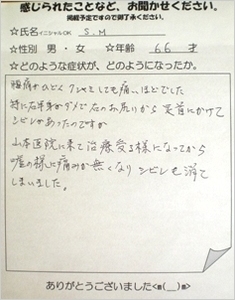 感じられたことなど、お聞かせください。
掲載予定ですので御了承ください。
☆氏名 イニシャルOK S.M
☆性別 男・女 ☆年齢 66才
☆どのような症状が、どのようになったか。
腰痛がひどく クシャミしても痛いほどでした
特に右半身がダメで右のお尻から足首にかけて
シビレがあったのですが
山本医院に来て治療受る様になってから
嘘の様に痛みが無くなり シビレも消て
しまいました。
ありがとうございました<m(__)m>